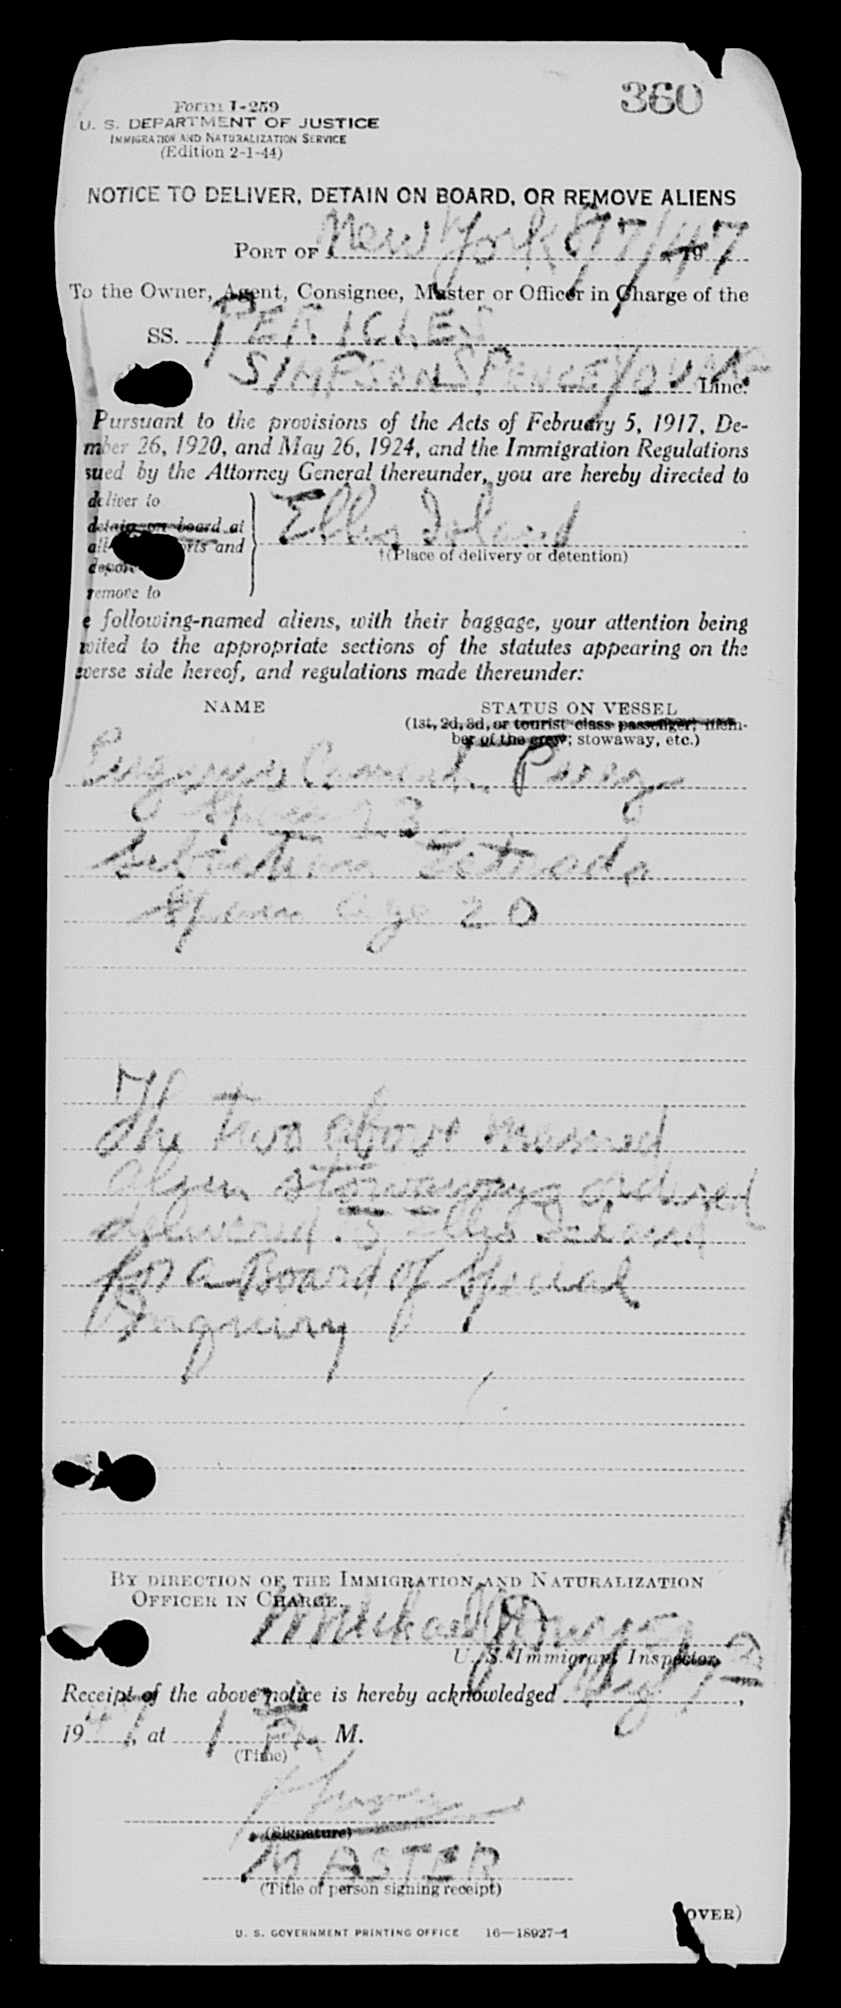 360
Form I-259
U. S. DEPARTMENT OF JUSTICE
IMMIGRATION AND NATURALIZATION SERVICE
(Edition 2-1-44)
NOTICE TO DELIVER, DETAIN ON BOARD, OR REMOVE ALIENS
PORT OF New York 8/7/47 19
To the Owner, Agent, Consignee, Master or Officer in Charge of the
SS. PERICLES
SIMPSON SPENCE YOUNG Line.
Pursuant to the provisions of the Acts of February 5, 1917, De-
mber 26, 1920, and May 26, 1924, and the Immigration Regulations
sued by the Attorney General thereunder, you are hereby directed to
deliver to
detain on board at
all rts and
depor
remove to
Ellis Island
†(Place of delivery or detention)
e following-named aliens, with their baggage, your attention being
vited to the appropriate sections of the statutes appearing on the
verse side hereof, and regulations made thereunder:
NAME STATUS ON VESSEL
(1st, 2d, 3d, or tourist class passenger; mem-
ber of the crew; stowaway, etc.)
Perez
Spain 23
Spain age 20
The two above named
alien stowaways ordered
delivered to Ellis Island
for a Board of Special
Inquiry
BY DIRECTION OF THE IMMIGRATION AND NATURALIZATION
OFFICER IN CHARGE.
Michael
U. S. Immigrant Inspector.
Receipt of the above notice is hereby acknowledged
1947, at 1 M.
(Time)
(Signature)
MASTER
(Title of person signing receipt)
OVER)
U. S. GOVERNMENT PRINTING OFFICE 16—18927-1